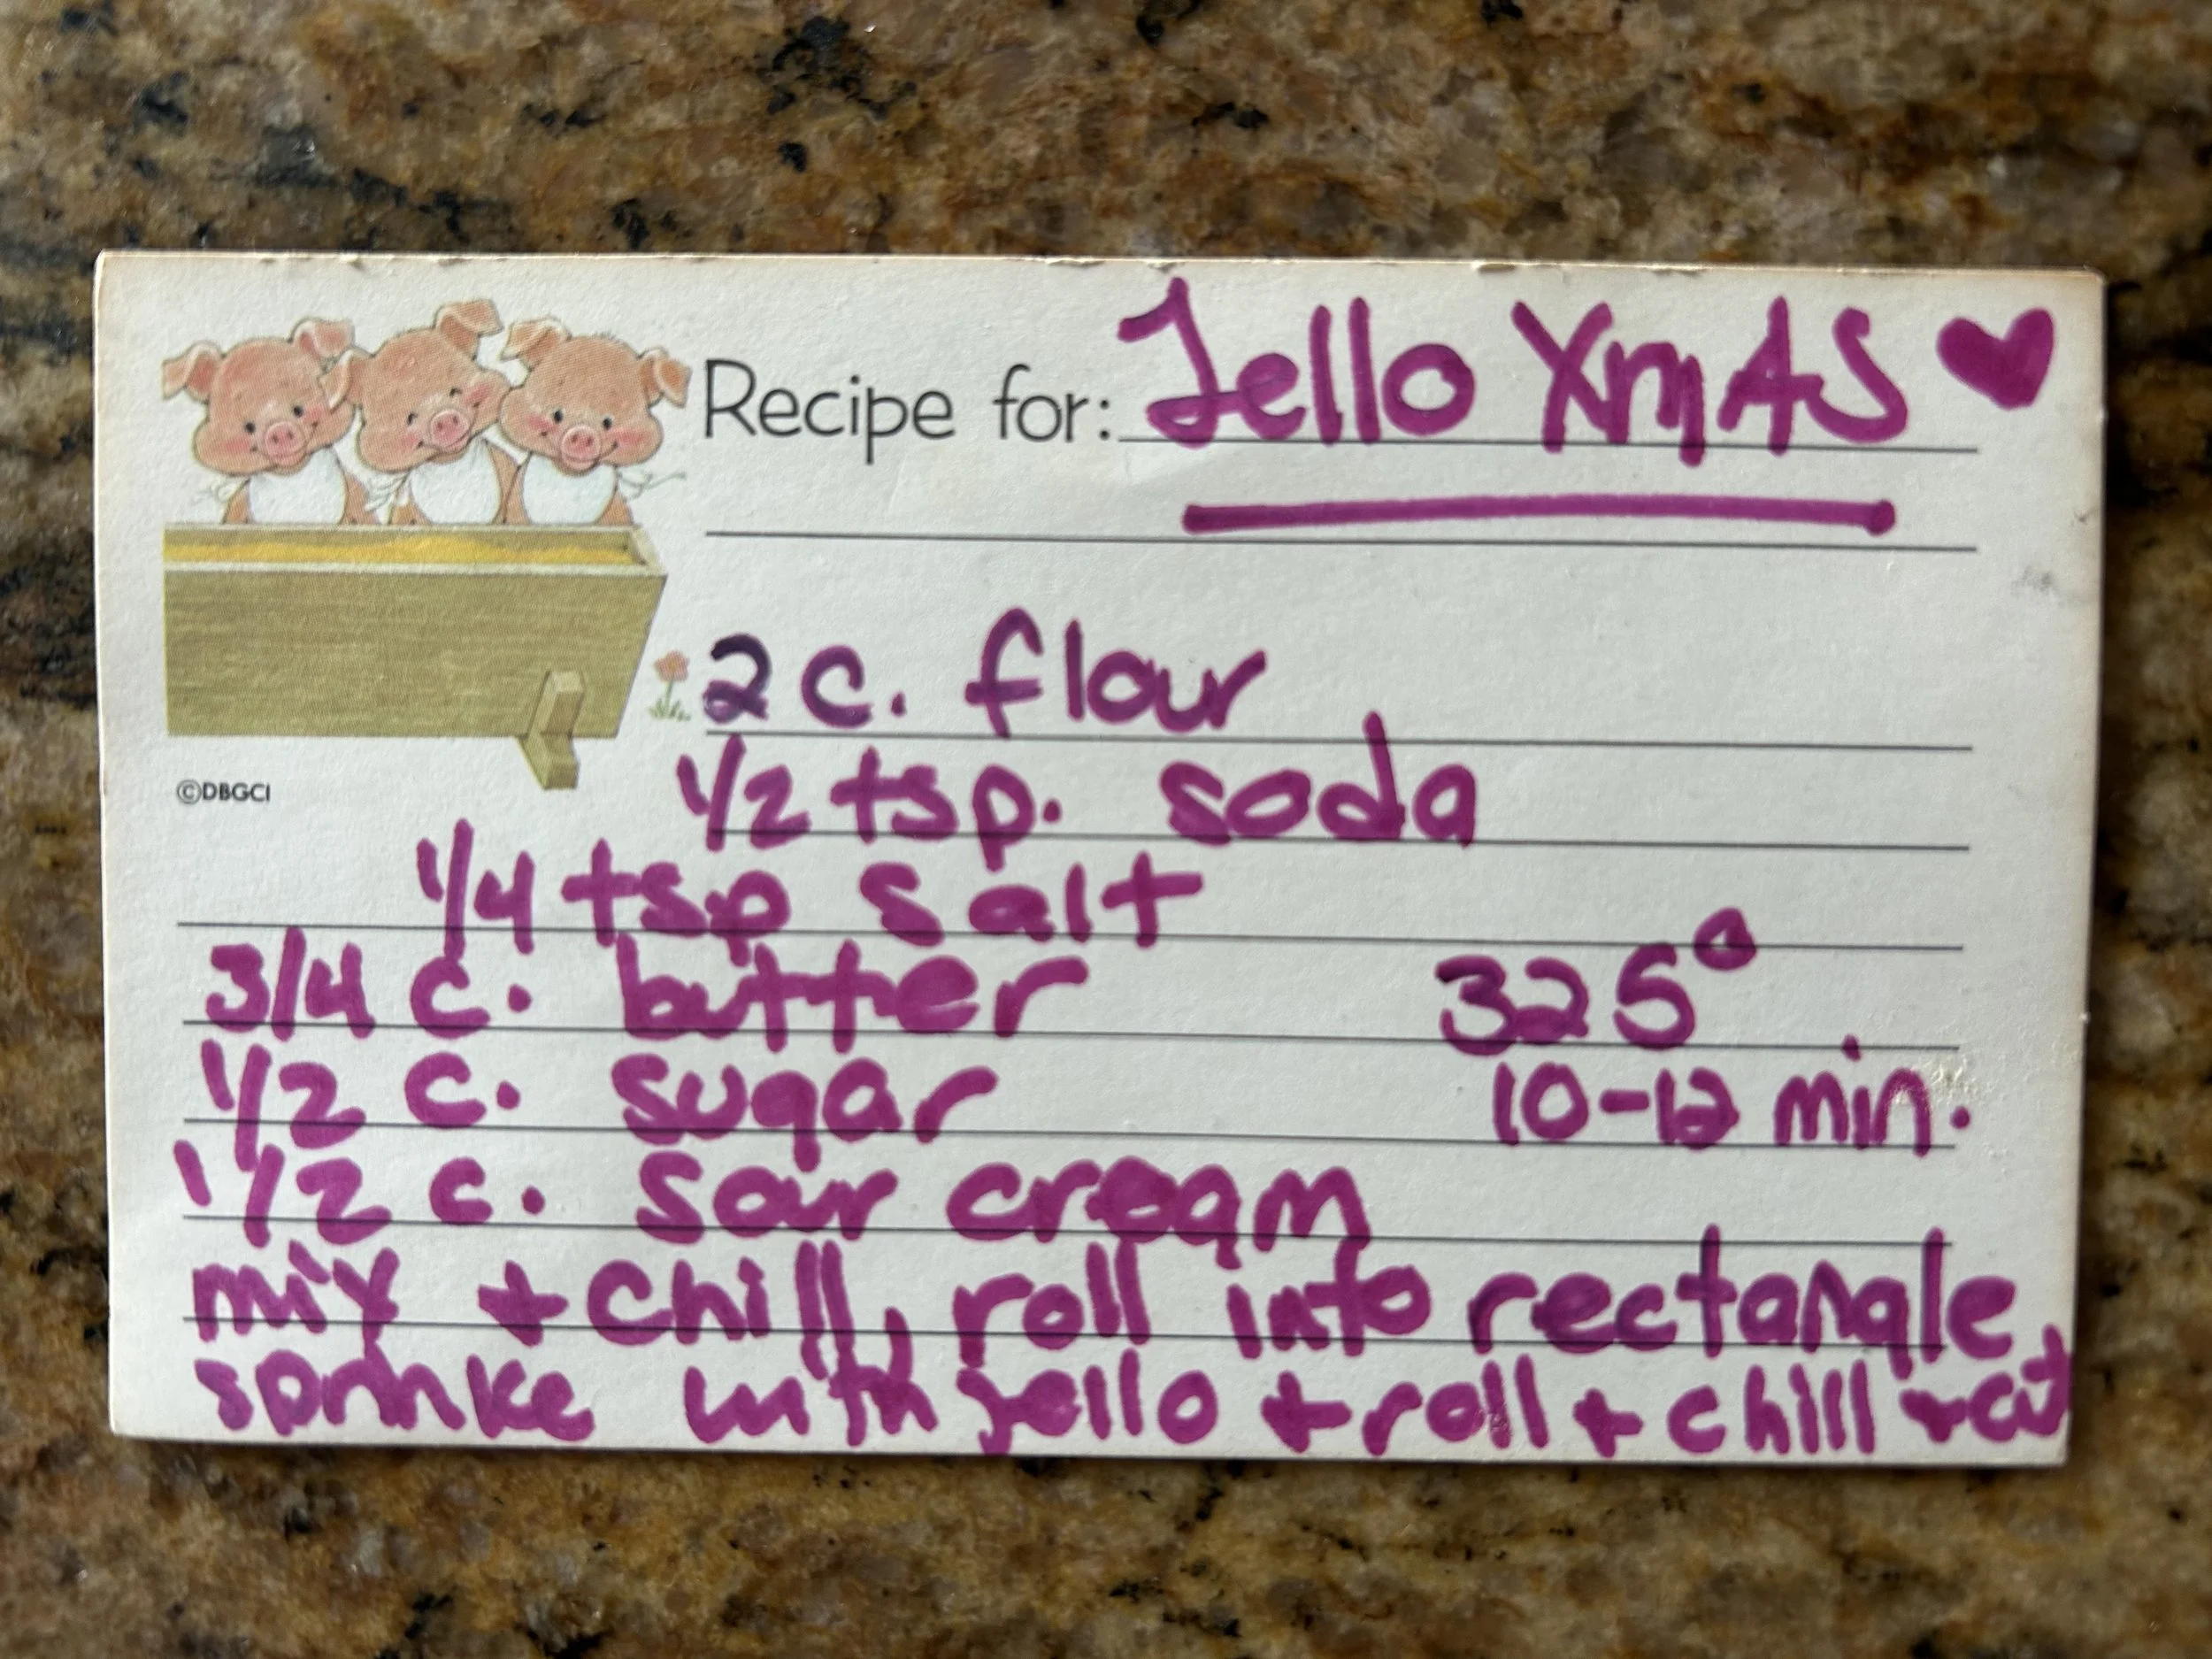 Recipe for: Jello XmAS
2 c. flour
1/2 tsp. soda
©DBGCI
1/4 tsp salt
3/4 c. butter 325°
1/2 c. sugar 10-12 min.
1 1/2 c. sour cream
mix + chill, roll into rectangle,
sprinke with jello + roll + chill + cut